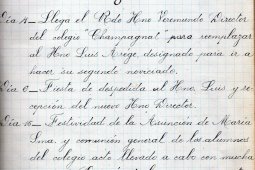 Día 4 - Llega el Rdo Hno Veremundo Director
del colegio "Champagnat" para reemplazar
al Hno Luis Arège, designado para ir a
hacer su segundo noviciado.
Día 6 - Fiesta de despedida al Hno Luis y re-
cepción del nuevo Hno Director.
Día 15 - Festividad de la Asunción de María
Sma. y comunión general de los alumnos
del colegio acto llevado a cabo con mucha